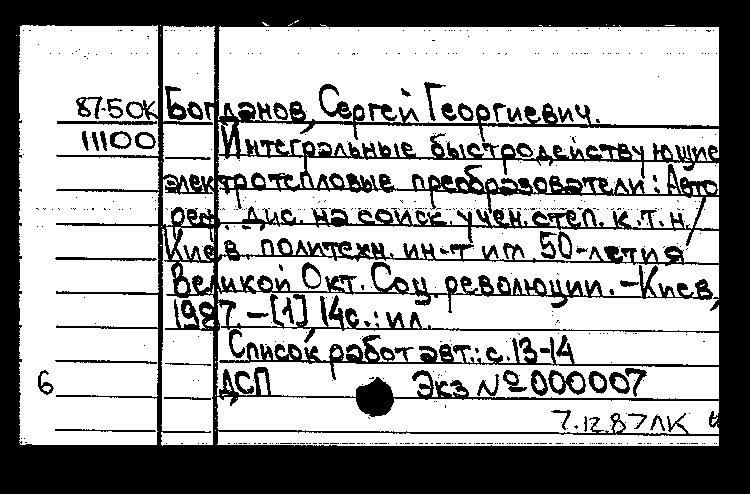 87-50К Богданов, Сергей Георгиевич.
11100 Интегральные быстродействующие
электротепловые преобразователи: Авто
реф. дис. на соиск. учен. степ. к.т.н. /
Киев. политехн. ин-т им. 50-летия
Великой Окт. Соц. революции. – Киев,
1987. – [1] 14с.: ил.
Список работ авт.: с. 13-14
6 ДСП Экз № 000007
7.12.87 ЛК